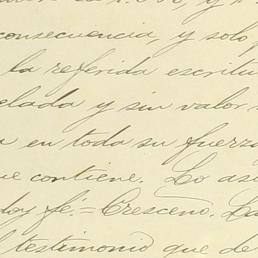 consecuencia, y solo
la referida escritu
elada y sin valor
en toda su fuerza
ue contiene. Lo as
doy fé.= Crescenc. La
testimonio que de